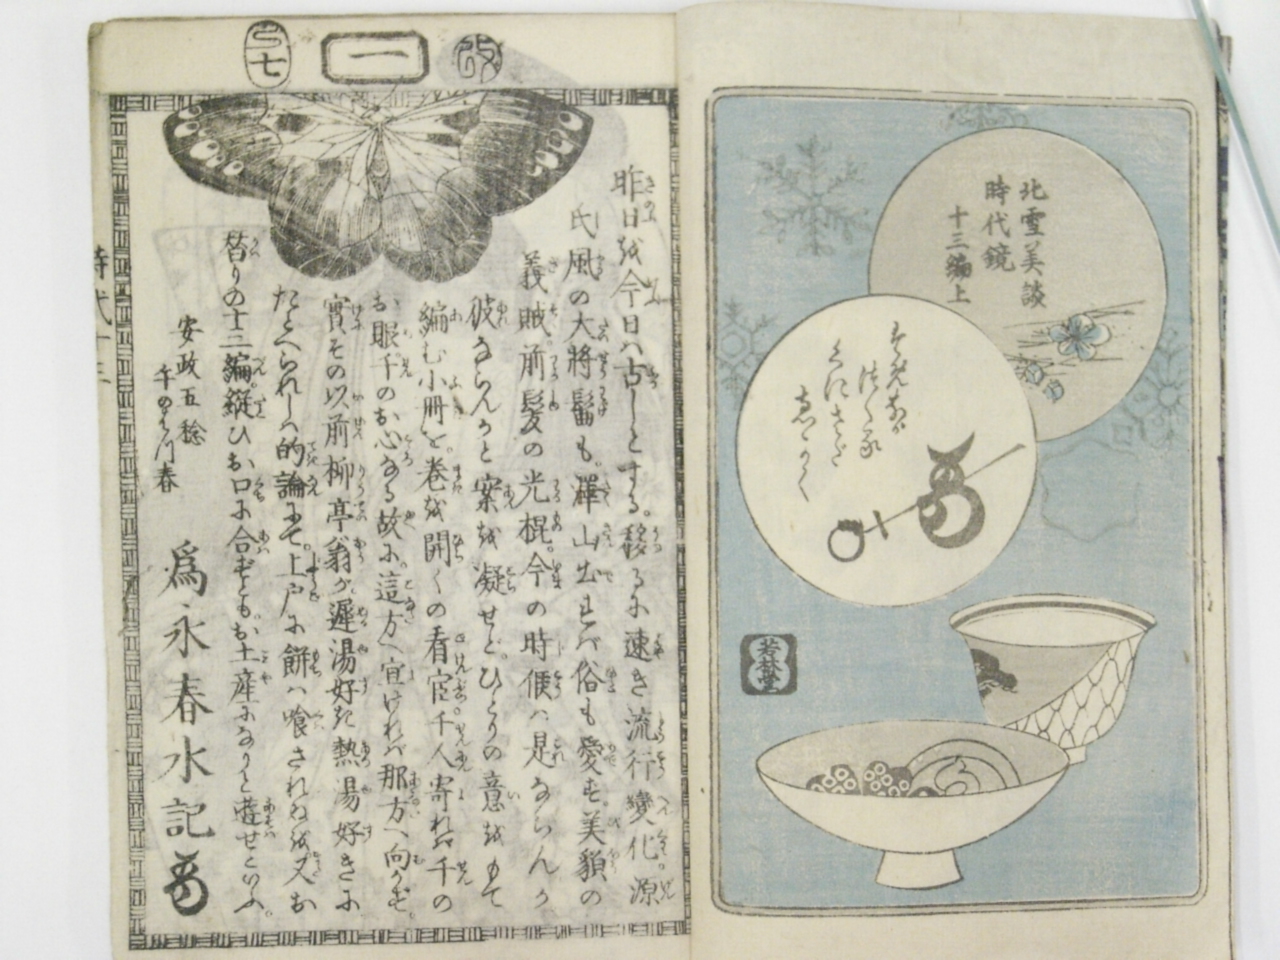 北雪美談
時代鏡
十三編上
若林堂
改
一
巳七
昨日を今日は古しとする。移るに速き流行変化。源
氏風の大将髷も。沢山出れば俗も愛ず。美貌の
義賊。前髪の光棍。今の時便は是ならんか
彼ならんかと案を凝せど。ひとりの意をもて
編む小冊を。巻を開くの看官千人寄れば千の
お眼千のお心なる故に。這方へ宜ければ那方へ向かず。
実その以前柳亭翁が。遅湯好き熱湯好きに
たとへられしは的論にて。上戸に餅は喰されぬを又お
替りの十三編。縦ひお口に合ずとも。お土産になりと
安政五稔
春
為永春水記
時代十三